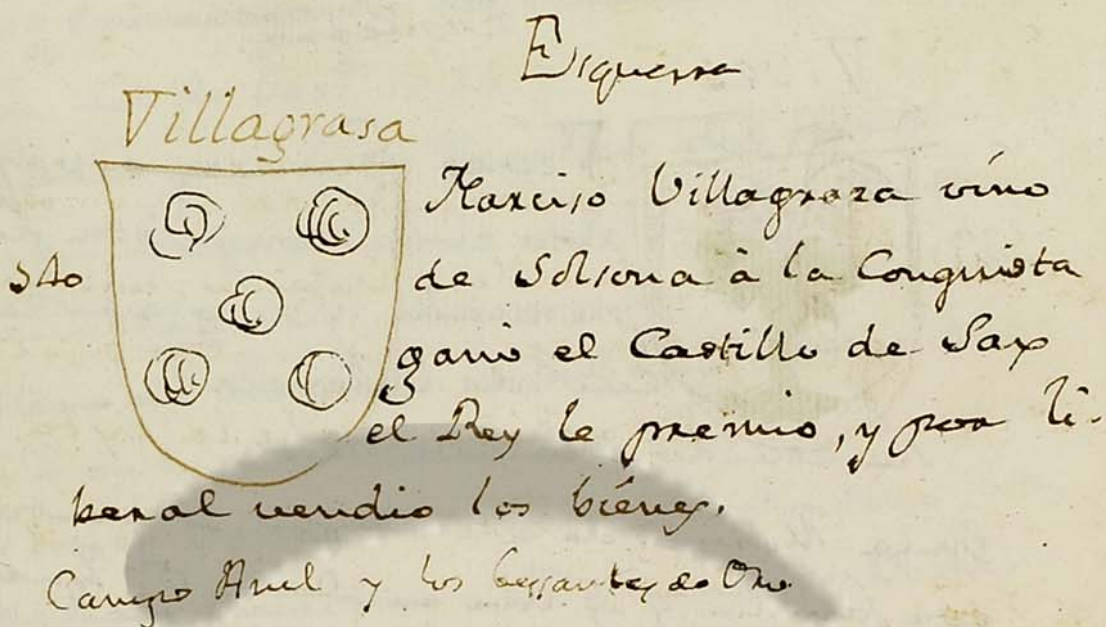 Esquerra
Villagrasa
540
Narciso Villagraza vino
de Solsona à la Conquista
gano el Castillo de Sax
el Rey le premio, y por li-
beral vendio los biénes.
Campo Azul y los bessantes de Oro